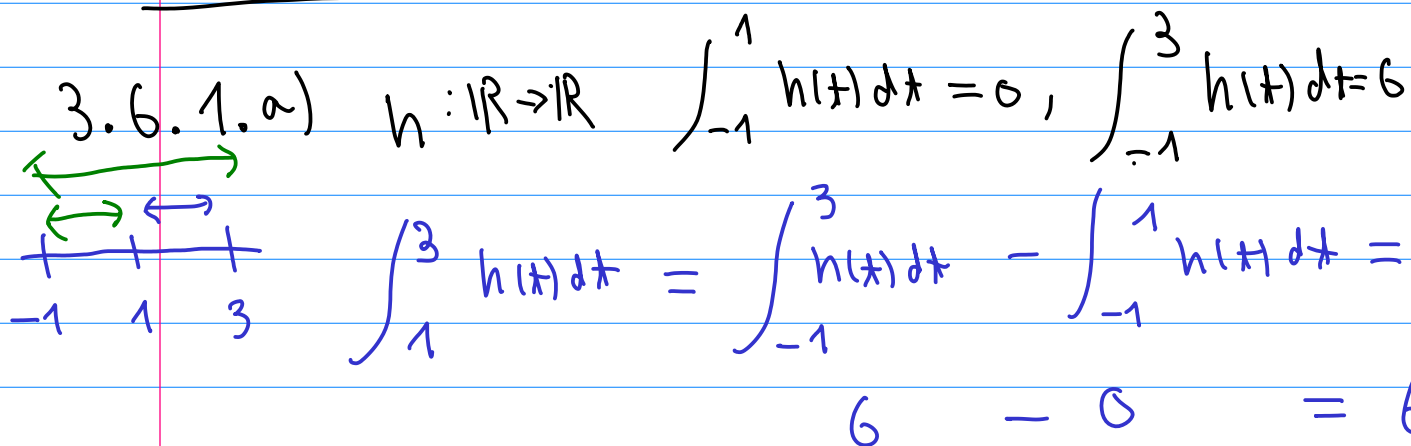 3.6.1.a) h : ℝ → ℝ ∫_{-1}^{1} h(t) dt = 0, ∫_{-1}^{3} h(t) dt = 6
-1 1 3 ∫_{1}^{3} h(t) dt = ∫_{-1}^{3} h(t) dt - ∫_{-1}^{1} h(t) dt =
6 - 0 =